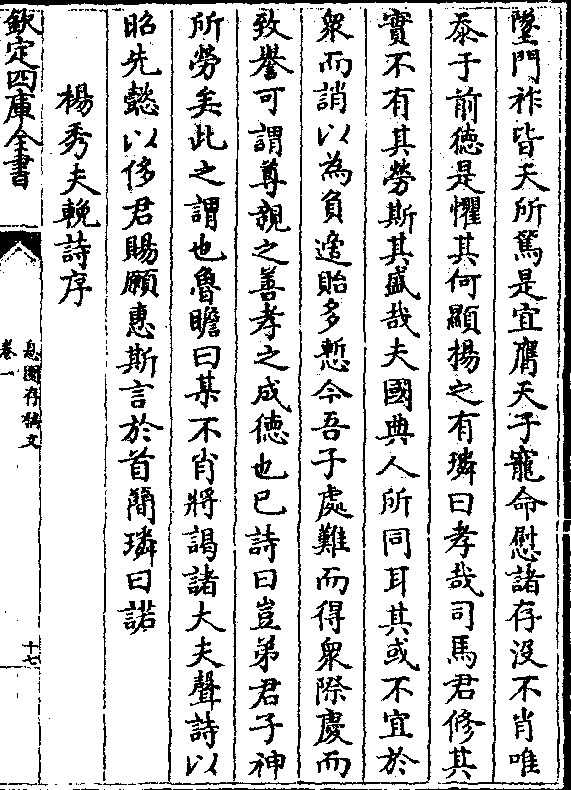 墜門祚皆天所篤是宜膺天子寵命慰諸存沒不肖唯
忝于前德是懼其何顯揚之有璘曰孝哉司馬君修其
實不有其勞斯其盛哉夫國典人所同耳其或不宜於
衆而誚以為負遠貽多慙今吾子處難而得衆際慶而
致譽可謂尊親之善孝之成德也已詩曰豈弟君子神
所勞矣此之謂也魯瞻曰某不肖將謁諸大夫聲詩以
昭先懿以侈君賜願惠斯言於首簡璘曰諾
楊秀夫輓詩序
欽定四庫全書
息園存稿文
卷一
十七